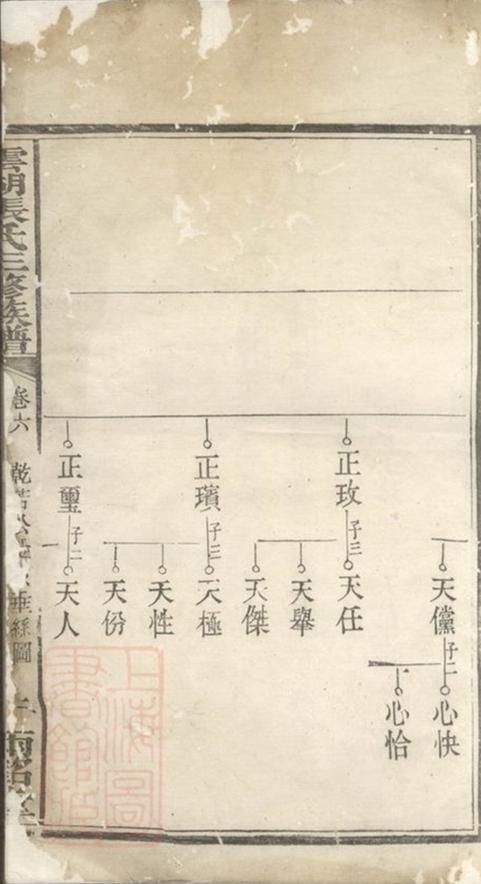 天儻 子二
心快
心恰
正玫 子三
天任
天舉
天傑
正璸 子三
天極
天性
天份
正璽 子二
天人
雲湖張氏三修族譜
卷六
乾
垂絲圖
上海圖書館藏